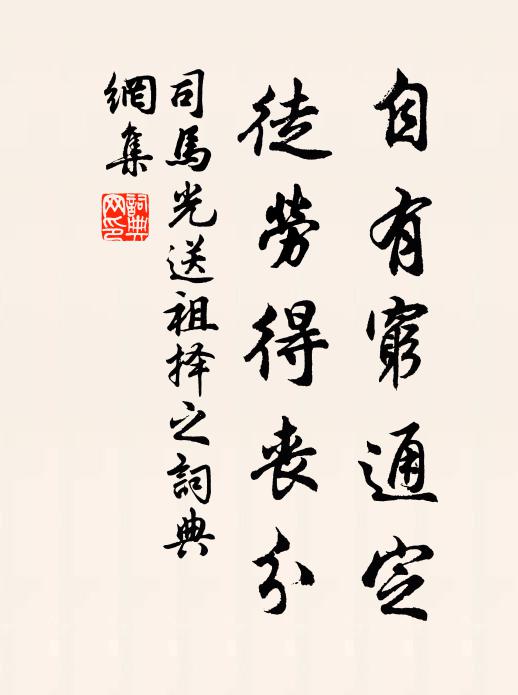 自有窮通定
徒勞得喪分
司馬光送祖择之詞典
網集
詞典網印